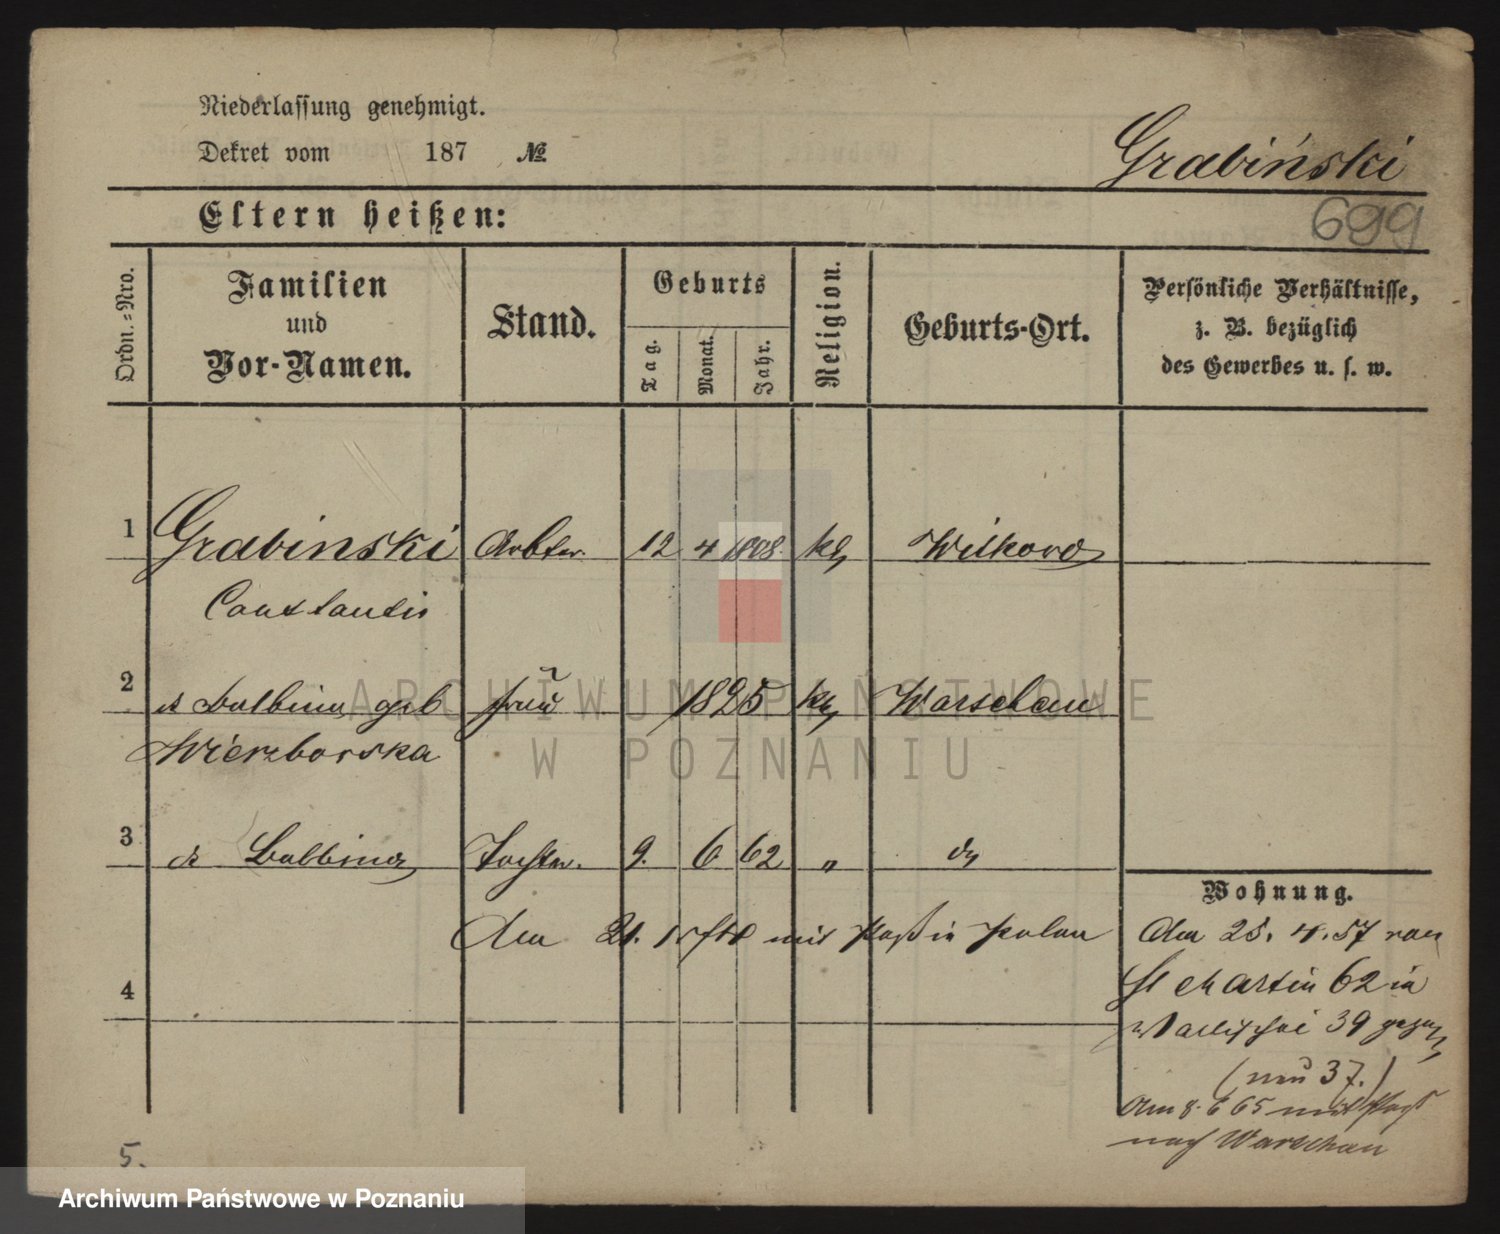 Niederlassung genehmigt.
Dekret vom 187 №
Grabiński
Eltern heißen:
699
Ordn.-Nro.
Familien
und
Vor-Namen.
Stand.
Geburts
Tag.
Monat.
Jahr.
Religion.
Geburts-Ort.
Persönliche Verhältnisse,
z. B. bezüglich
des Gewerbes u. s. w.
1 Grabinski Arbtr. 12 4 1808. kl Witkowo
Constantin
2 Balbina geb frau 1825 kl Warschau
Wierzborska
3 Balbina Tochter. 9. 6 62 " do
Wohnung.
Am 21. mit Paß in Polen
Am 25. 4. 57 von
St Martin 62 in
Wallischei 39 gezogen
(neu 37.)
Am 8. 6 65 mit Paß
nach Warschau
4
5.
ARCHIWUM PAŃSTWOWE
W POZNANIU
Archiwum Państwowe w Poznaniu